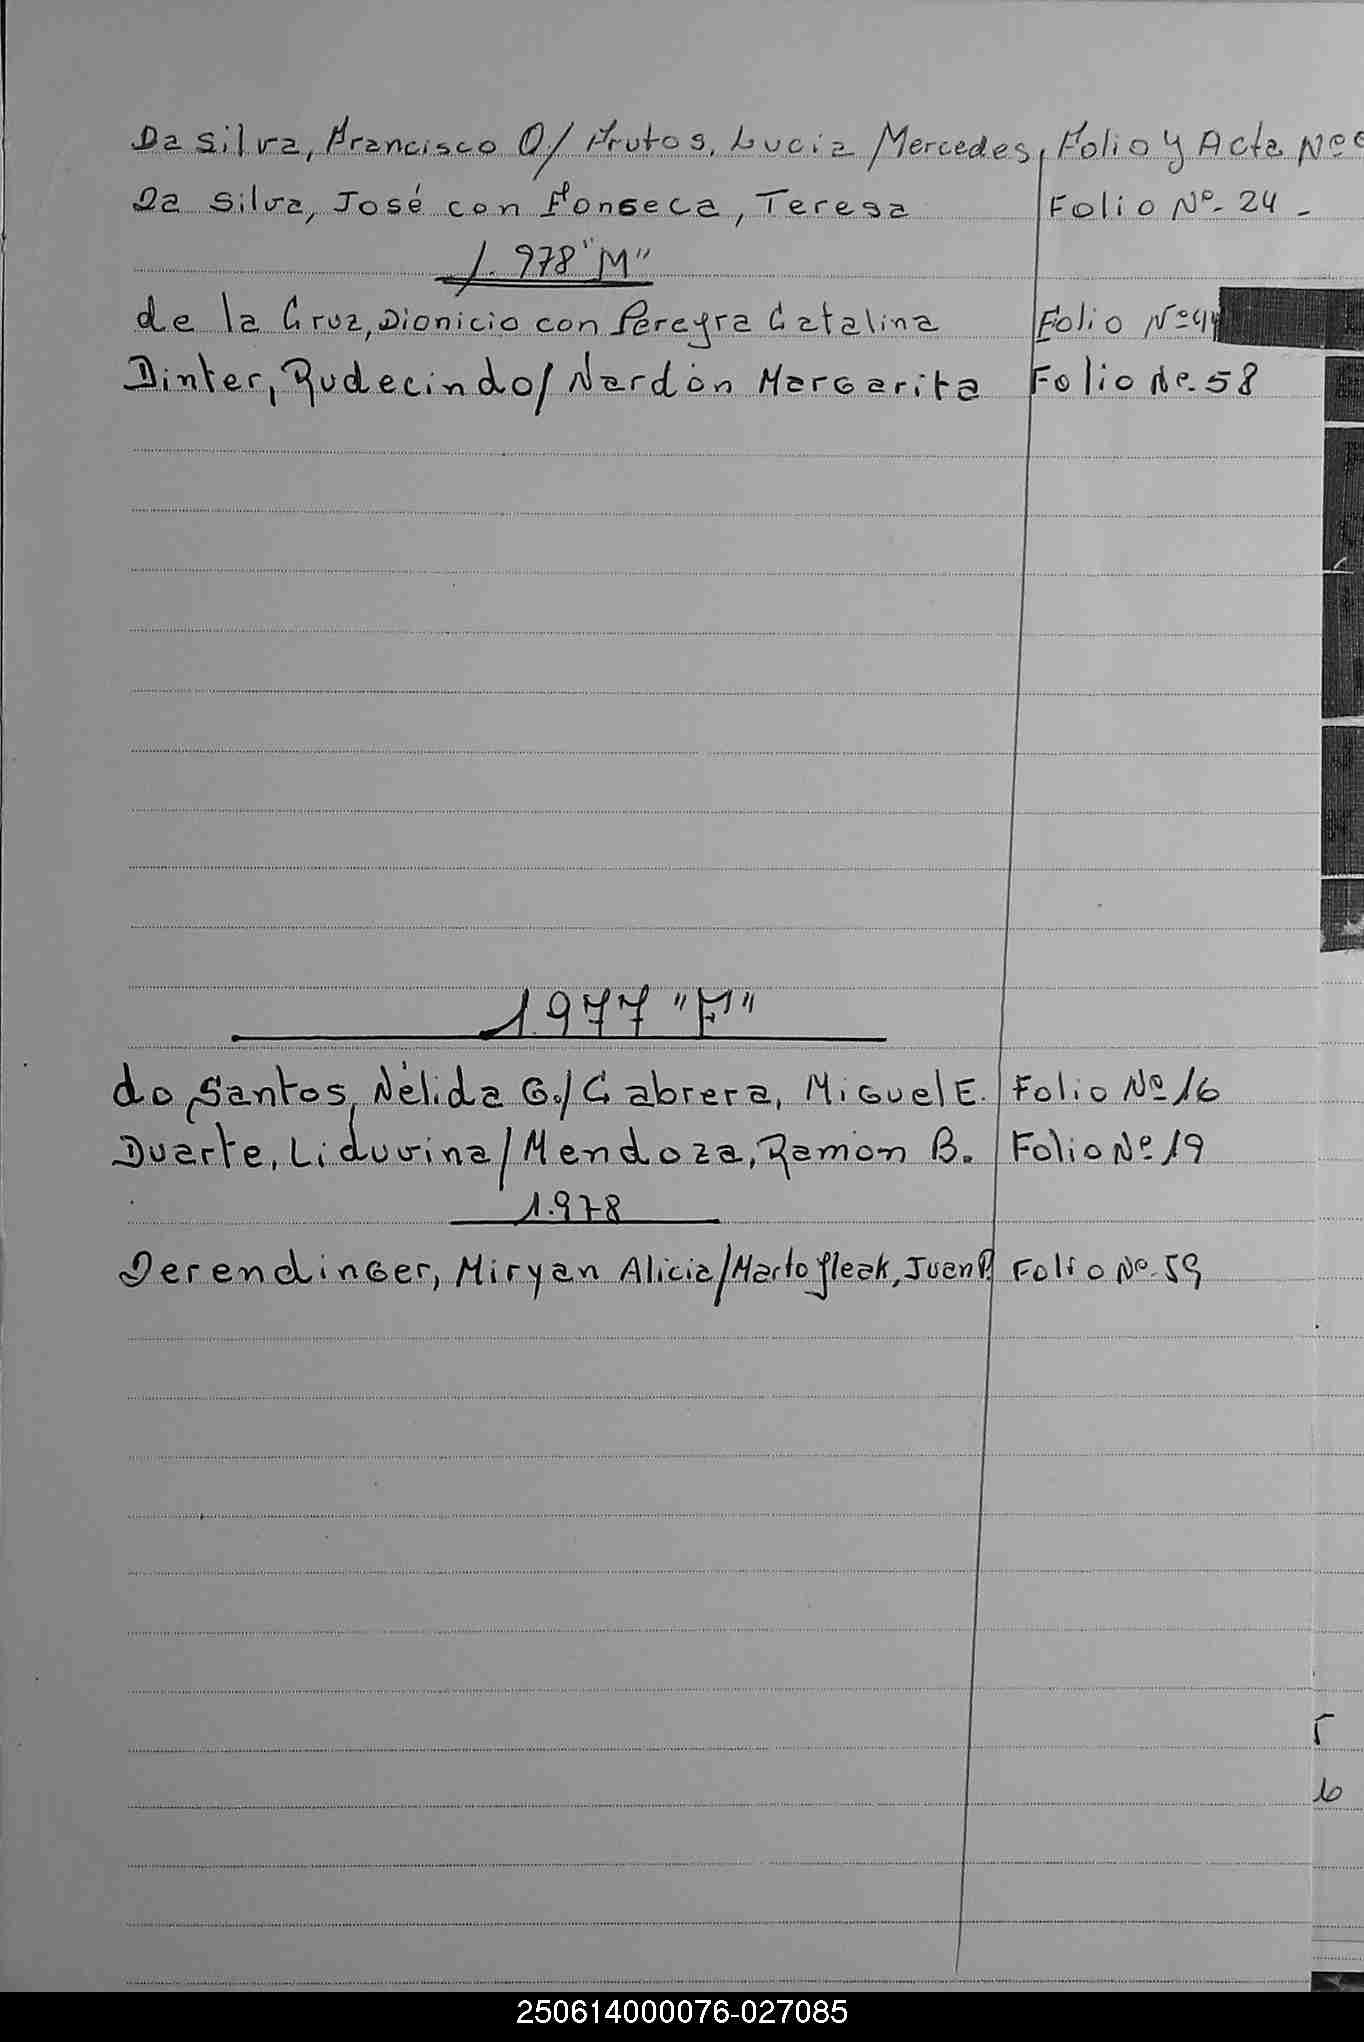 Da Silva, Francisco O/ Frutos, Lucia Mercedes, Folio y Acta Nº
Da Silva, José con Fonseca, Teresa Folio Nº- 24 -
1.978 "M"
de la Cruz, Dionicio con Pereyra Catalina Folio Nº
Dinter, Rudecindo/ Nardón Margarita Folio Nº. 58
1977 "F"
do Santos, Nélida G./ Cabrera, Miguel E. Folio Nº 16
Duarte, Liduvina/ Mendoza, Ramón B. Folio Nº 19
1.978
Derendinger, Miryan Alicia/ Martofleak, Juan P. Folio Nº- 59
6
250614000076-027085